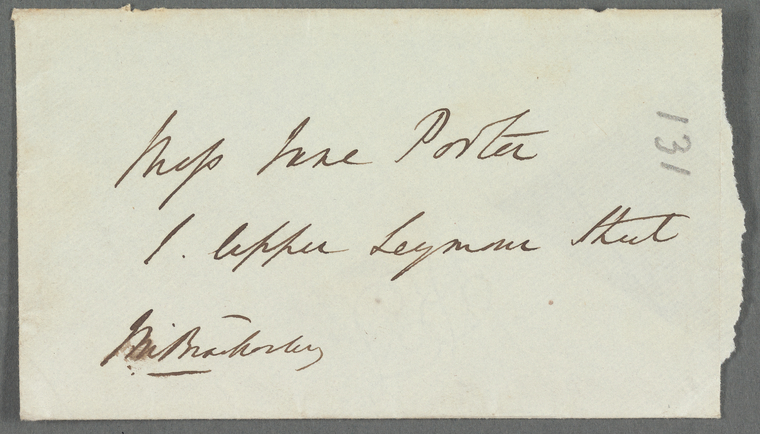 Miss Jane Porter
1. Upper Seymour Street
131